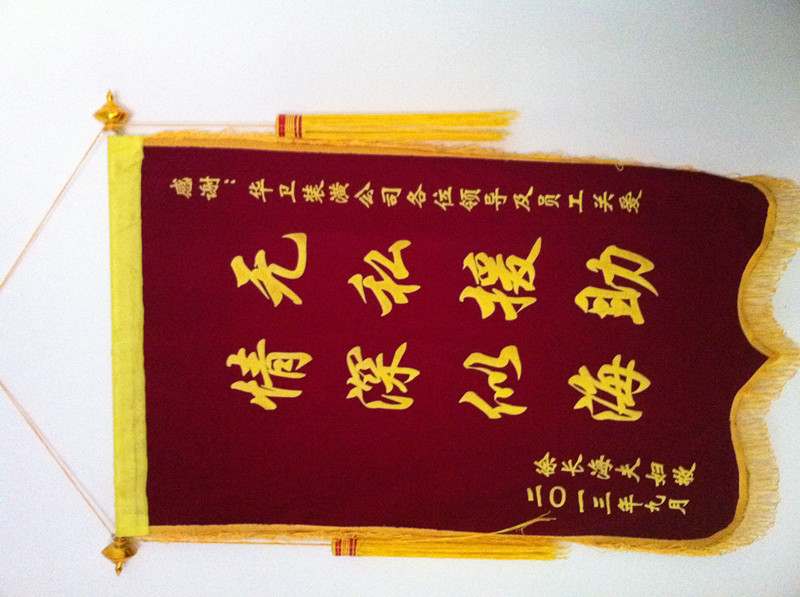 感谢：华卫装潢公司各位领导及员工关爱
无私援助
情深似海
徐长海夫妇敬
二〇一三年九月